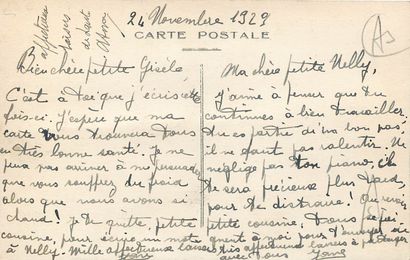 24 Novembre 1929
CARTE POSTALE
Bien chère petite Gisèle,
C'est à toi que j'écris cette
fois-ci. J'espère que ma
carte vous trouvera tous
en très bonne santé. Je ne
peux pas arriver à me persuader
que vous souffrez du froid
alors que nous avons si
chaud! Je te quitte, petite
cousine, pour écrire un mot
à Nelly. Mille affectueux baisers
Yane
affectueux
baisers
de tout
Ma chère petite Nelly,
j'aime à penser que tu
continues à bien travailler.
Tu es partie d'un bon pas,
il ne faut pas ralentir. Ne
néglige pas ton piano, il
te sera précieux plus tard,
pour te distraire. Au revoir
petite cousine, tous se joi
gnent à moi pour t'envoyer
affectueux baisers à partager
avec tous Yane